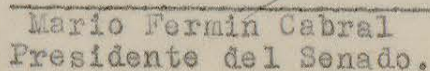 Mario Fermín Cabral
Presidente del Senado.